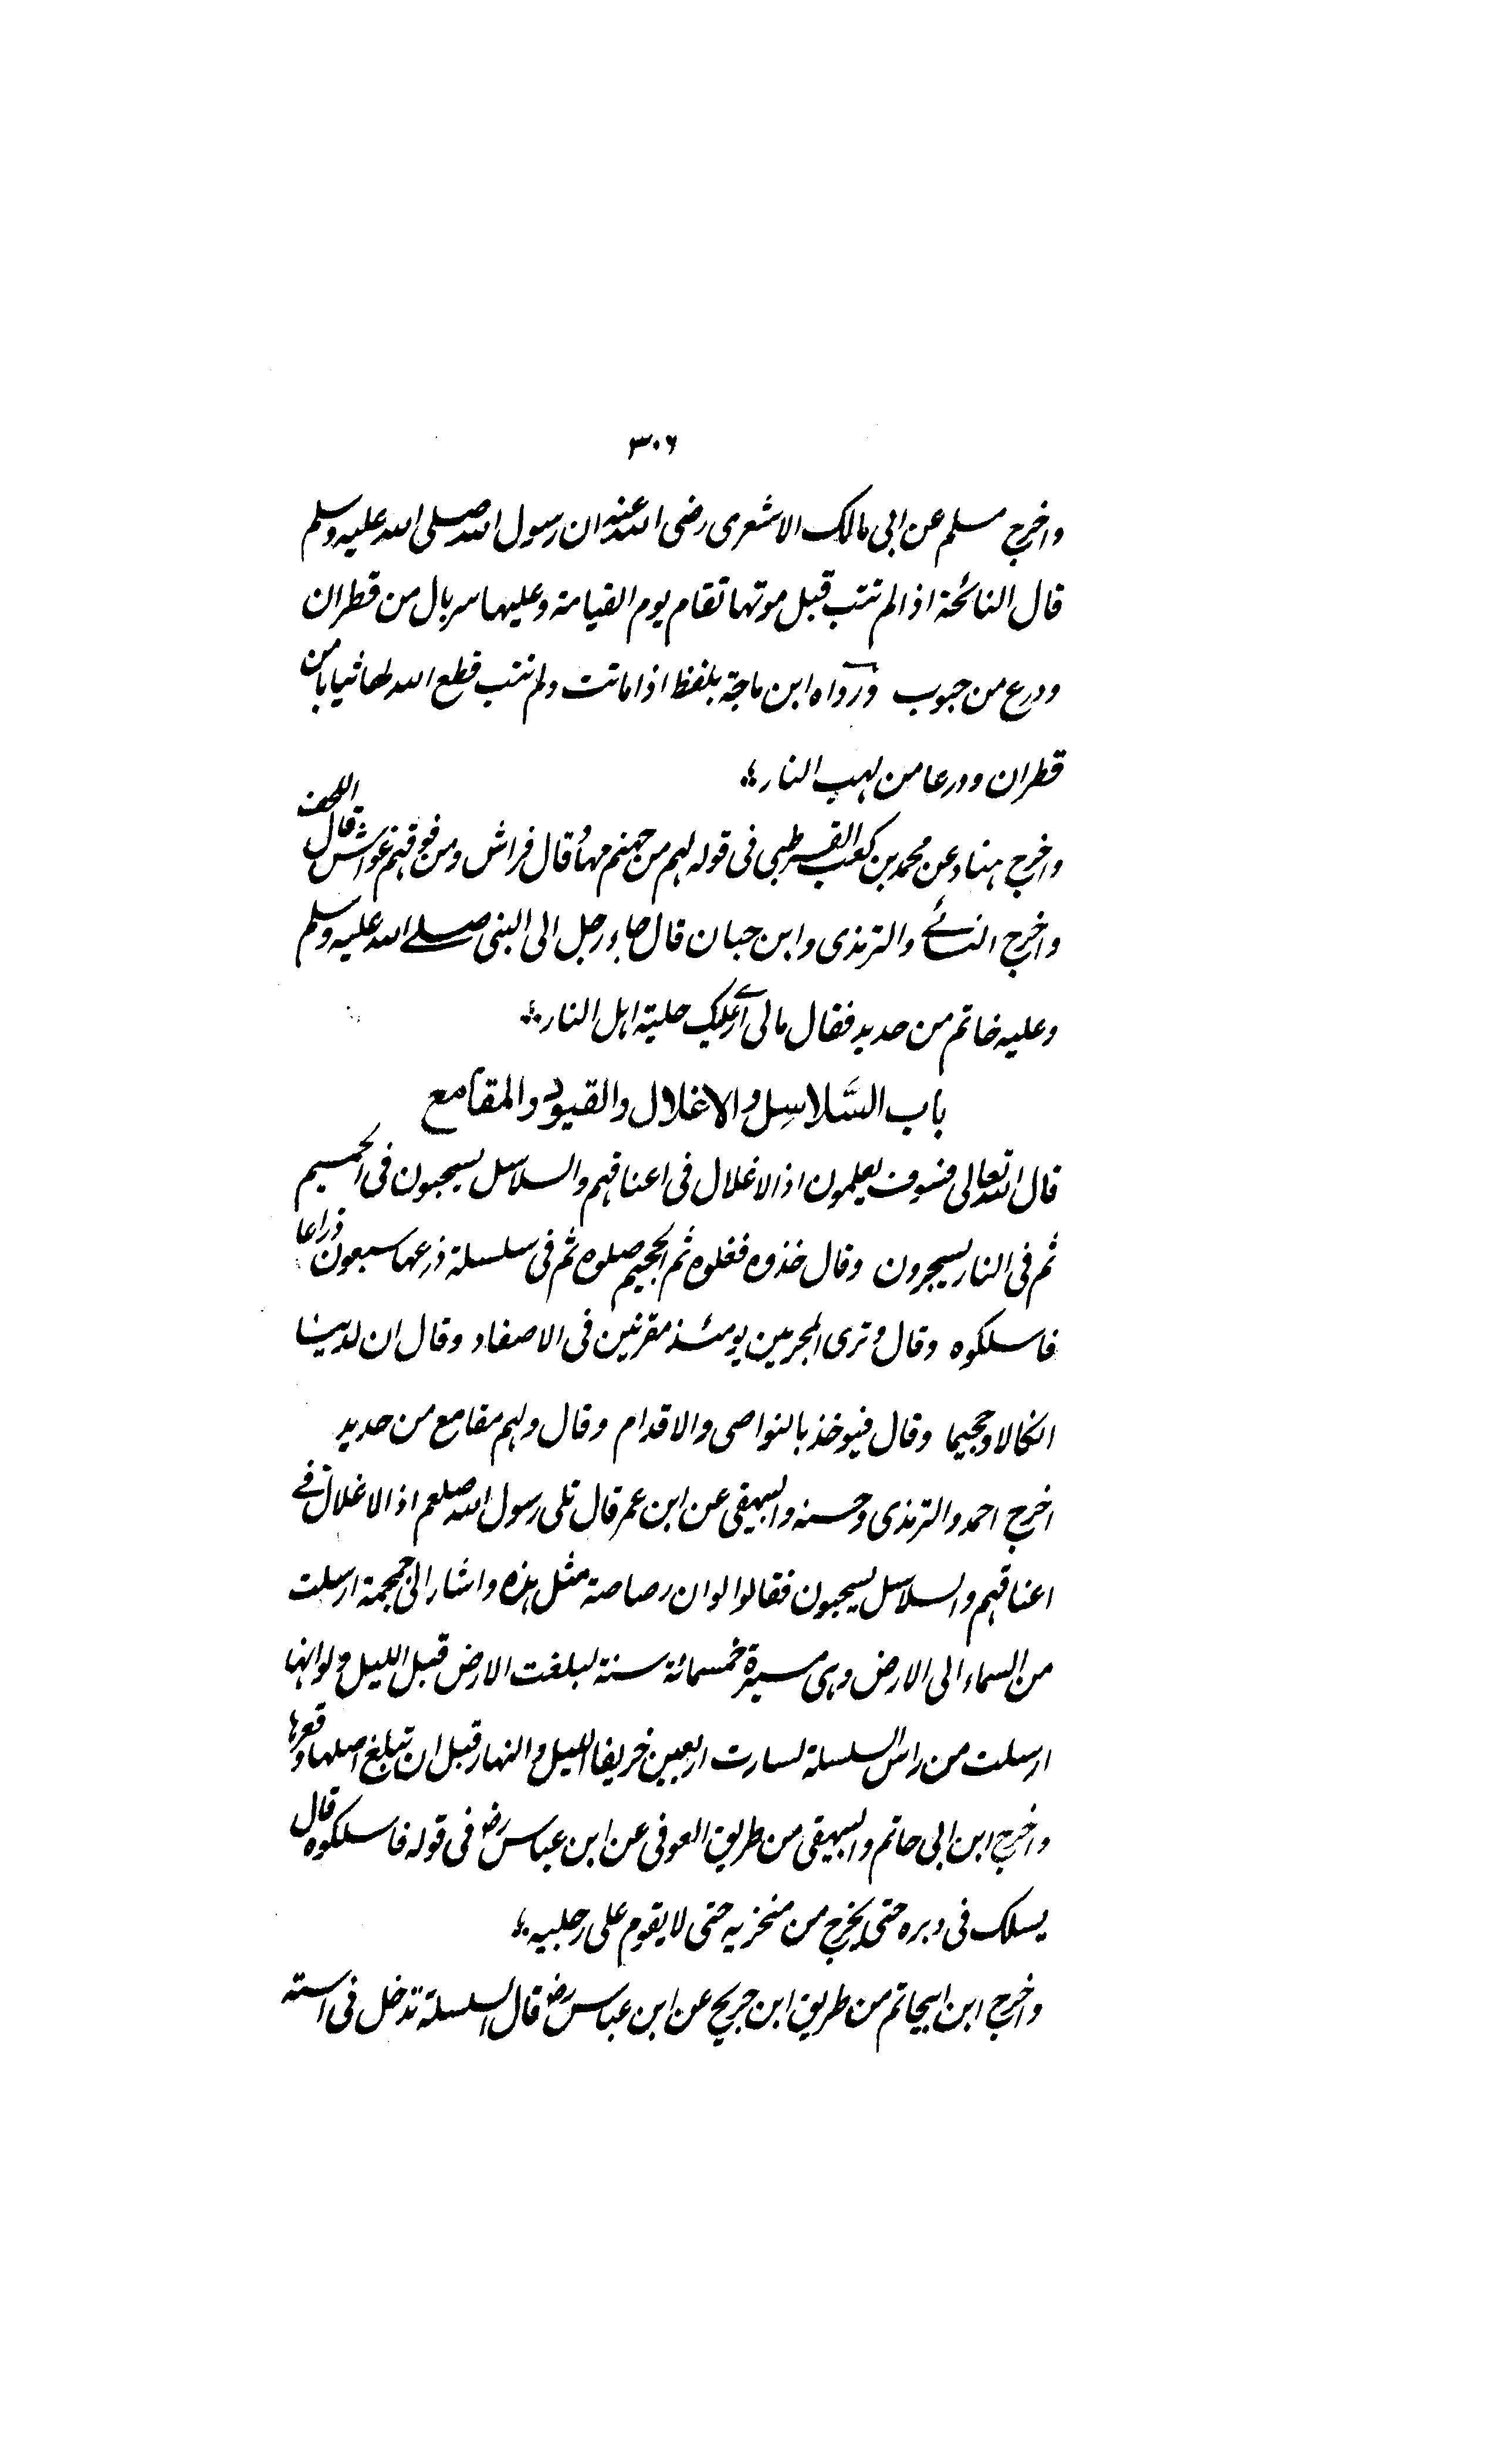 ٣٠٦
واخرج مسلم عن ابی مالک الاشعری رضی الله عنه ان رسول الله صلی الله علیه وسلم
قال النائحة اذا لم تتب قبل موتها تقام یوم القیامة وعلیها سربال من قطران
ودرع من جوب ورواه ابن ماجة بلفظ اذا ماتت ولم تتب قطع الله لها ثیابا من
قطران ودرعا من لهب النار
واخرج هناد عن محمد بن کعب القرطبی فی قوله لهم من جهنم مهاد قال فراش ومن فوقهم غواش قال اللحف
واخرج النسائے والترمذی وابن حبان قال جاء رجل الی النبی صلے الله علیه وسلم
وعلیه خاتم من حدید فقال مالی آرے علیک حلیة اهل النار
باب السَّلاسِل والاغلال والقیود والمقامع
قال الله تعالی فسوف یعلمون اذ الاغلال فی اعناقهم والسلاسل یسحبون فی الحمیم
ثم فی النار یسجرون وقال خذوه فغلوه ثم الجحیم صلوه ثم فی سلسلة ذرعها سبعون ذراعا
فاسلکوه وقال وتری المجرمین یومئذ مقرنین فی الاصفاد وقال ان لدینا
انکالا وجحیما وقال فیوخذ بالنواصی والاقدام وقال ولهم مقامع من حدید
اخرج احمد والترمذی وحسنه والبیهقی عن ابن عمر قال تلی رسول الله صلعم اذ الاغلال فے
اعناقهم والسلاسل یسحبون فقالوا لو ان رصاصة مثل هذه واشار الی جمجمة ارسلت
من السماء الی الارض وهی مسیرة خمسمائة سنة لبلغت الارض قبل اللیل ولو انها
ارسلت من راس السلسلة لسارت اربعین خریفا اللیل والنهار قبل ان تبلغ اصلها وقعرها
واخرج ابن ابی حاتم والبیهقی من طریق العوفی عن ابن عباس رض فی قوله فاسلکوه قال
یسلک فی دبره حتی یخرج من منخریه حتی لا یقوم علی رجلیه
واخرج ابن ابیحاتم من طریق ابن جریج عن ابن عباس رض قال السلسلة تدخل فی استه